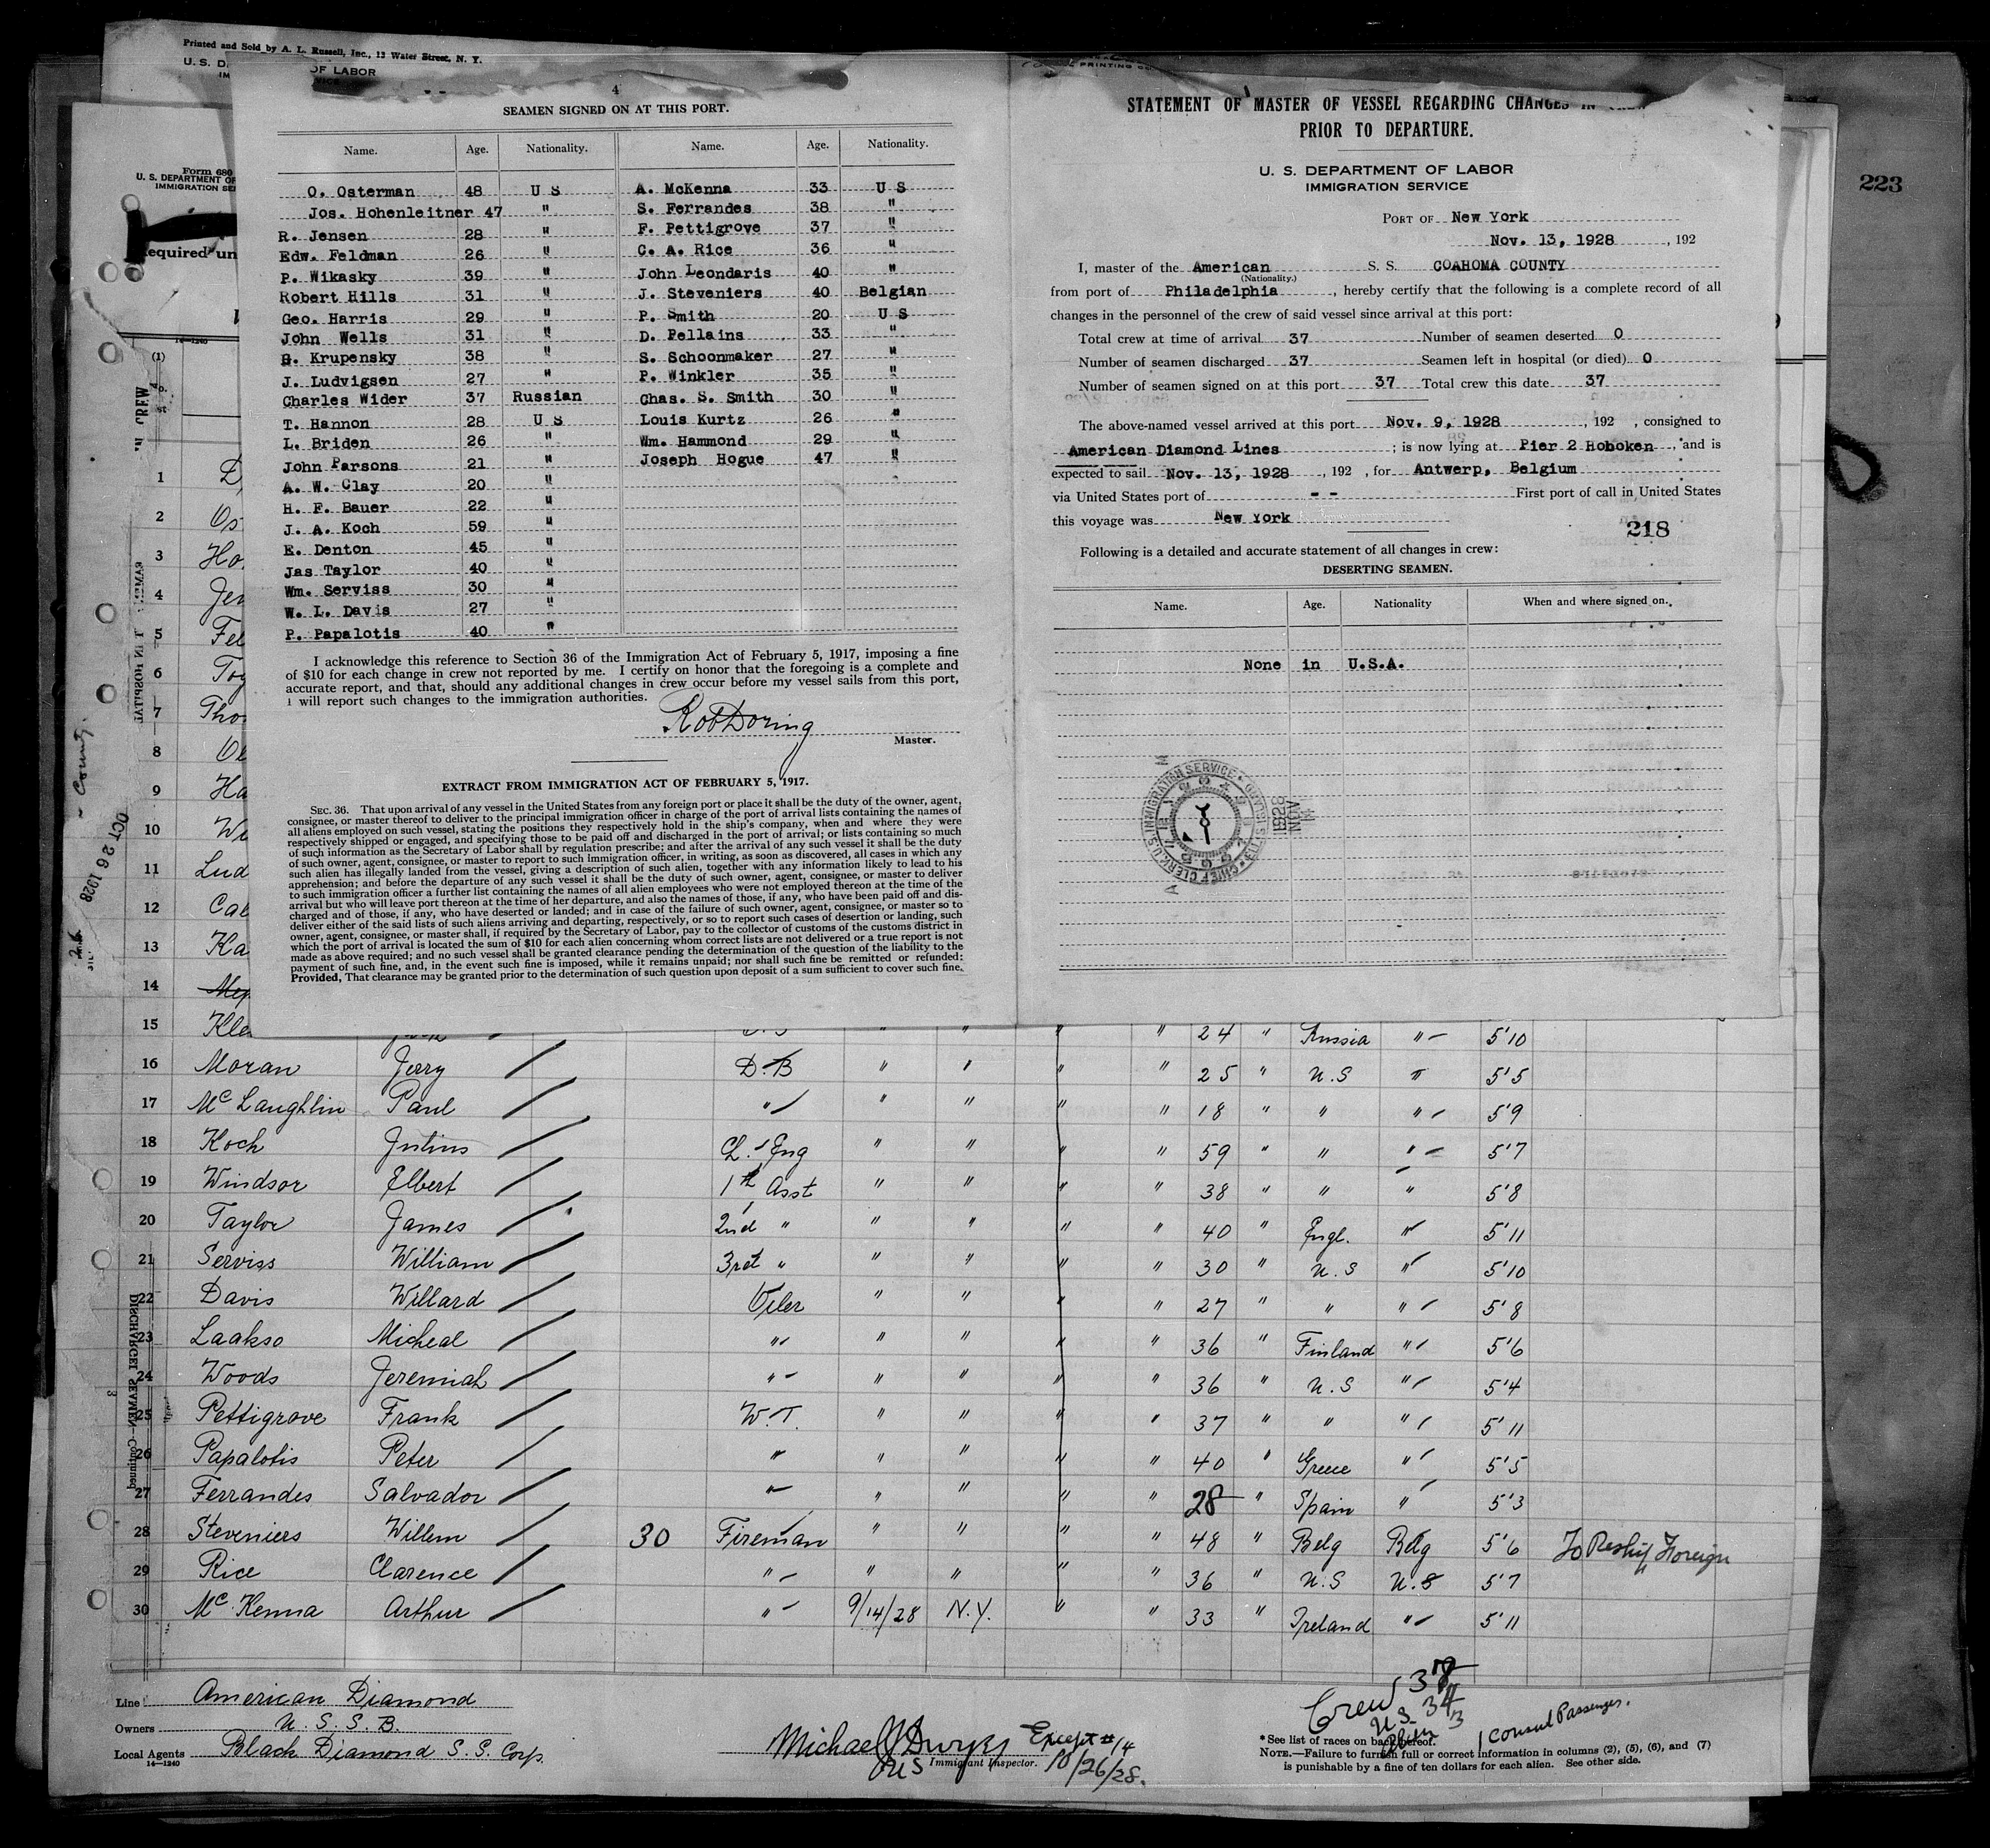 Printed and Sold by A. L. Russell, Inc., 12 Water Street, N. Y.
OF LABOR
4
SEAMEN SIGNED ON AT THIS PORT.
Name. Age. Nationality. Name. Age. Nationality.
O. Osterman 48 U S A. McKenna 33 U S
Jos. Hohenleitner 47 " S. Ferrandes 38 "
R. Jensen 28 " F. Pettigrove 37 "
Edw. Feldman 26 " C. A. Rice 36 "
P. Wikasky 39 " John Leondaris 40 "
Robert Hills 31 " J. Steveniers 40 Belgian
Geo. Harris 29 " P. Smith 20 U S
John Wells 31 " D. Pellains 33 "
Krupensky 38 " S. Schoonmaker 27 "
J. Ludvigsen 27 " P. Winkler 35 "
Charles Wider 37 Russian Chas. S. Smith 30 "
T. Hannon 28 U S Louis Kurtz 26 "
L. Briden 26 " Wm. Hammond 29 "
John Parsons 21 " Joseph Hogue 47 "
A. W. Clay 20 "
H. F. Bauer 22 "
J. A. Koch 59 "
E. Denton 45 "
Jas Taylor 40 "
Wm. Serviss 30 "
W. L. Davis 27 "
P. Papalotis 40 "
I acknowledge this reference to Section 36 of the Immigration Act of February 5, 1917, imposing a fine
of $10 for each change in crew not reported by me. I certify on honor that the foregoing is a complete and
accurate report, and that, should any additional changes in crew occur before my vessel sails from this port,
I will report such changes to the immigration authorities.
Rob Doring
Master.
EXTRACT FROM IMMIGRATION ACT OF FEBRUARY 5, 1917.
SEC. 36. That upon arrival of any vessel in the United States from any foreign port or place it shall be the duty of the owner, agent,
consignee, or master thereof to deliver to the principal immigration officer in charge of the port of arrival lists containing the names of
all aliens employed on such vessel, stating the positions they respectively hold in the ship's company, when and where they were
respectively shipped or engaged, and specifying those to be paid off and discharged in the port of arrival; or lists containing so much
of such information as the Secretary of Labor shall by regulation prescribe; and after the arrival of any such vessel it shall be the duty
of such owner, agent, consignee, or master to report to such immigration officer, in writing, as soon as discovered, all cases in which any
such alien has illegally landed from the vessel, giving a description of such alien, together with any information likely to lead to his
apprehension; and before the departure of any such vessel it shall be the duty of such owner, agent, consignee, or master to deliver
to such immigration officer a further list containing the names of all alien employees who were not employed thereon at the time of the
arrival but who will leave port thereon at the time of her departure, and also the names of those, if any, who have been paid off and dis-
charged and of those, if any, who have deserted or landed; and in case of the failure of such owner, agent, consignee, or master so to
deliver either of the said lists of such aliens arriving and departing, respectively, or so to report such cases of desertion or landing, such
owner, agent, consignee, or master shall, if required by the Secretary of Labor, pay to the collector of customs of the customs district in
which the port of arrival is located the sum of $10 for each alien concerning whom correct lists are not delivered or a true report is not
made as above required; and no such vessel shall be granted clearance pending the determination of the question of the liability to the
payment of such fine, and, in the event such fine is imposed, while it remains unpaid; nor shall such fine be remitted or refunded:
Provided, That clearance may be granted prior to the determination of such question upon deposit of a sum sufficient to cover such fine.
STATEMENT OF MASTER OF VESSEL REGARDING CHANGES IN
PRIOR TO DEPARTURE.
U. S. DEPARTMENT OF LABOR
IMMIGRATION SERVICE
PORT OF New York
Nov. 13, 1928, 192
I, master of the American S. S. COAHOMA COUNTY
(Nationality.)
from port of Philadelphia, hereby certify that the following is a complete record of all
changes in the personnel of the crew of said vessel since arrival at this port:
Total crew at time of arrival 37 Number of seamen deserted 0
Number of seamen discharged 37 Seamen left in hospital (or died) 0
Number of seamen signed on at this port 37 Total crew this date 37
The above-named vessel arrived at this port Nov. 9, 1928, 192 , consigned to
American Diamond Lines; is now lying at Pier 2 Hoboken, and is
expected to sail Nov. 13, 1928, 192 , for Antwerp, Belgium
via United States port of - - First port of call in United States
this voyage was New York
218
Following is a detailed and accurate statement of all changes in crew:
DESERTING SEAMEN.
Name. Age. Nationality When and where signed on.
None in U.S.A.
U.S. IMMIGRATION SERVICE
CHIEF CLERK
1928 NOV
223
Form 680
U. S. DEPARTMENT OF
IMMIGRATION SE
Required un
14-1240
(1)
County
OCT 26 1928
1
2 Os
3 Ho
4 Jen
5 Fel
6
7 Tho
8
9 Ha
10 Wi
11 Lud
12
13 Ka
14
15 Kle " " " " 24 " Russia " 5'10
16 Moran Jerry D.B " " " " 25 " U.S " 5'5
17 McLaughlin Paul " " " " " 18 " " " 5'9
18 Koch Julius Ch. Eng " " " " 59 " " " 5'7
19 Windsor Elbert 1st Asst " " " " 38 " " " 5'8
20 Taylor James 2nd " " " " " 40 " Engl. " 5'11
21 Serviss William 3rd " " " " " 30 " U.S " 5'10
22 Davis Willard Oiler " " " " 27 " " " 5'8
23 Laakso Micheal " " " " " 36 " Finland " 5'6
24 Woods Jeremiah " " " " " 36 " U.S " 5'4
25 Pettigrove Frank W.T. " " " " 37 " " " 5'11
26 Papalotis Peter " " " " " 40 " Greece " 5'5
27 Ferrandes Salvador " " " " " 28 " Spain " 5'3
28 Steveniers Willem 30 Fireman " " " " 48 " Belg Belg 5'6 To Reship Foreign
29 Rice Clarence " " " " " 36 " U.S U.S 5'7
30 McKenna Arthur " 9/14/28 N.Y. " " 33 " Ireland " 5'11
Line American Diamond
Owners U. S. S. B.
Local Agents Black Diamond S. S. Corp.
14-1240
Michael J Dwyer Except #14
Immigrant Inspector. 10/26/28.
Crew 37
U S 34
Alien 3
1 Consul Passenger.
* See list of races on back hereof.
NOTE.—Failure to furnish full or correct information in columns (2), (5), (6), and (7)
is punishable by a fine of ten dollars for each alien. See other side.